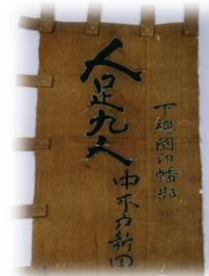 下総國印幡郡
人足九人
中木戸新田